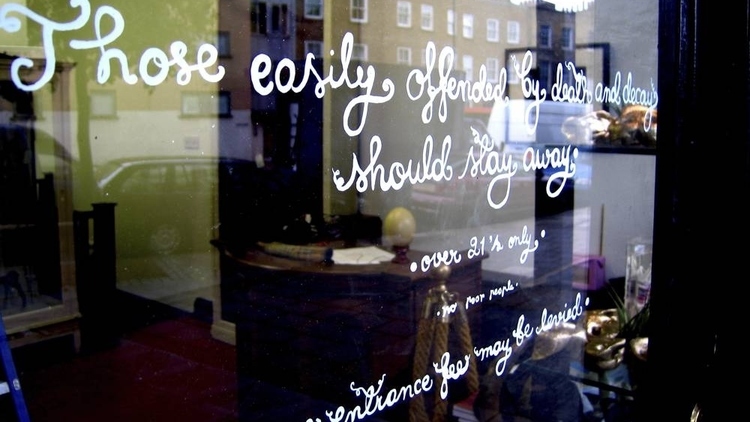 Those easily offended by death and decay
should stay away.
• over 21's only •
• no poor people •
entrance fee may be levied •